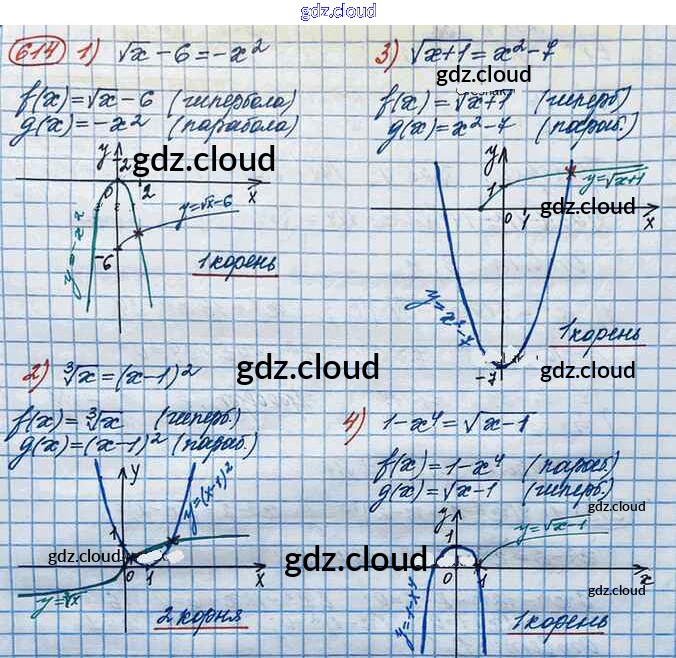 gdz.cloud
614 1) √x − 6 = −x²
f(x) = √x − 6 (гипербола)
g(x) = −x2 (парабола)
y 2
gdz.cloud
0 2 x
y = √x−6
y = −x2
−6
1 корень
3) √x+1 = x² − 7
gdz.cloud
f(x) = √x+1 (гиперб)
g(x) = x² − 7 (параб.)
y
y = √x+1
1
gdz.cloud
0 1 x
y = x² − 7
1 корень
−7
2) ∛x = (x−1)²
gdz.cloud
f(x) = ∛x (гиперб.)
g(x) = (x−1)² (параб.)
y
y = (x−1)²
1
gdz.cloud
0 1 x
y = ∛x
2 корня
4) 1 − x⁴ = √x−1
f(x) = 1 − x⁴ (параб.)
g(x) = √x − 1 (гиперб.)
gdz.cloud
y
y = √x−1
1
gdz.cloud
0 1 x
gdz.cloud
y = 1−x⁴
1 корень